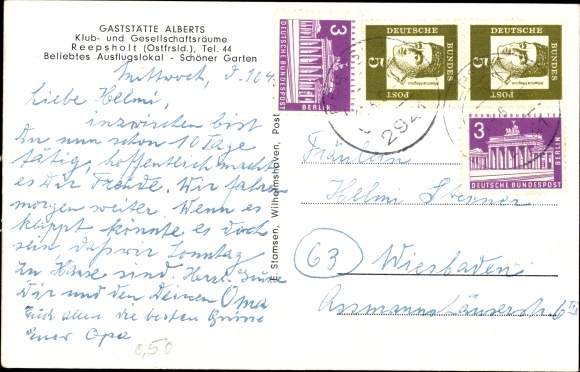 GASTSTÄTTE ALBERTS
Klub- und Gesellschaftsräume
Reepsholt (Ostfrsld.), Tel. 44
Beliebtes Ausflugslokal - Schöner Garten
Mittwoch,
Liebe Helmi,
inzwischen bist
Du nun schon 10 Tage
tätig, hoffentlich macht
es Dir Freude. Wir fahren
morgen weiter. Wenn es
klappt könnte es doch
sein daß wir Sonntag
zu Hause sind. Herzl. Grüße
Dir und den Deinen Oma
Euch allen die besten Grüsse
Euer Opa
0,50
E. Stamsen, Wilhelmshaven, Post
3
DEUTSCHE BUNDESPOST
BERLIN
DEUTSCHE BUNDESPOST
5
Albertus Magnus
DEUTSCHE BUNDESPOST
5
Albertus Magnus
2941
3
BRANDENBURGER
BERLIN
DEUTSCHE BUNDESPOST
Fräulein
Helmi Sterner
63 Wiesbaden
Assmannshäuserstr. 6